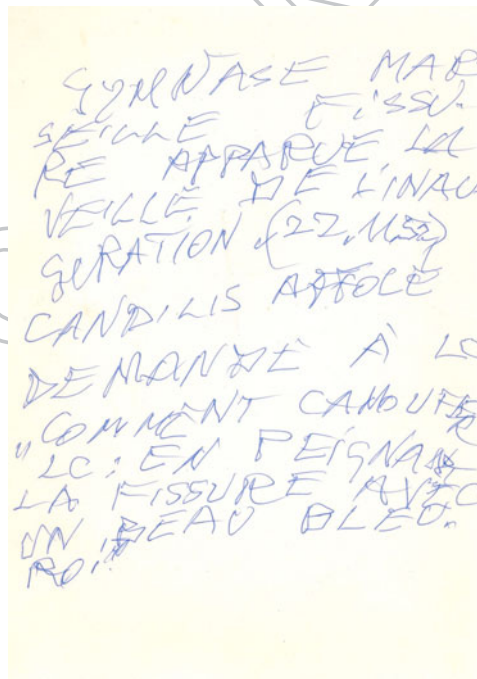 GYMNASE MAR
SEILLE FISSU-
RE APPARUE LA
VEILLE DE L'INAU
GURATION (22.11.52)
CANDILIS AFFOLÉ
DEMANDE À LC
"COMMENT CAMOUFLER
LC: EN PEIGNANT
LA FISSURE AVEC
UN BEAU BLEU.
ROI